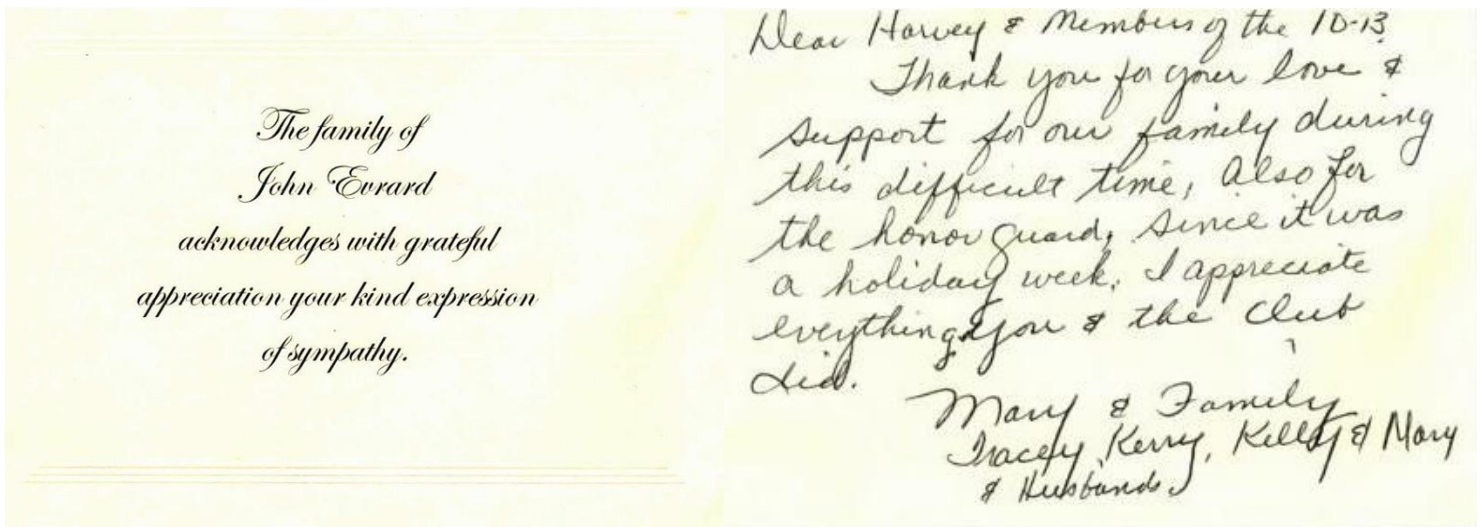 The family of
John Evrard
acknowledges with grateful
appreciation your kind expression
of sympathy.
Dear Harvey & Members of the 10-13.
Thank you for your love &
support for our family during
this difficult time, Also for
the honor guard, since it was
a holiday week. I appreciate
everything you & the Club
did.
Mary & Family
Tracey, Kerry, Kelly & Mary
& Husbands